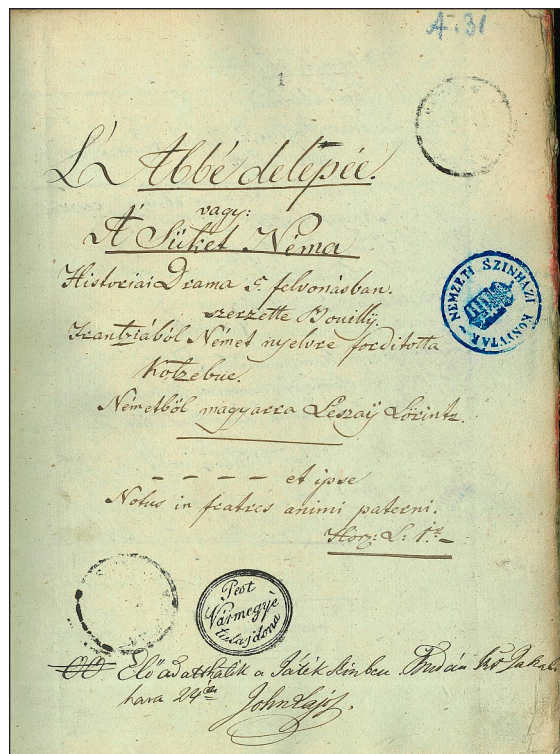 A:31
1
L' Abbé delépée.
vagy:
A' Süket Néma
Historiai Drama 5. felvonásban.
szerzette Bouilly.
Frantziából Német nyelvre forditotta
Kotzebue.
Németből magyarra Leszaÿ Lörintz.
– – – – et ipse
Notus in fratres animi paterni.
Horz: L:
NEMZETI SZINHÁZI KÖNYVTÁR
Pest
Vármegye
tulajdona
Előadatthatik a Játék szinben Budán
hava 24